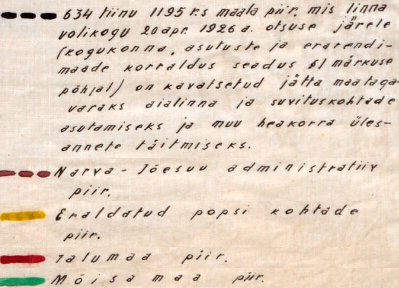 634 tiinu 1195 r.s maala piir, mis linna
volikogu 20 apr. 1926 a. otsuse järele
(kogukonna, asutuste ja erarendi-
maade korraldus seadus §1 märkuse
põhjal) on kavatsetud jätta maataga-
varaks aialinna ja suvituskohtade
asutamiseks ja muu heakorra üles-
annete täitmiseks.
Narva-Jõesuu administratiiv
piir.
Eraldatud popsi kohtade
piir.
Talumaa piir.
Mõisa maa piir.